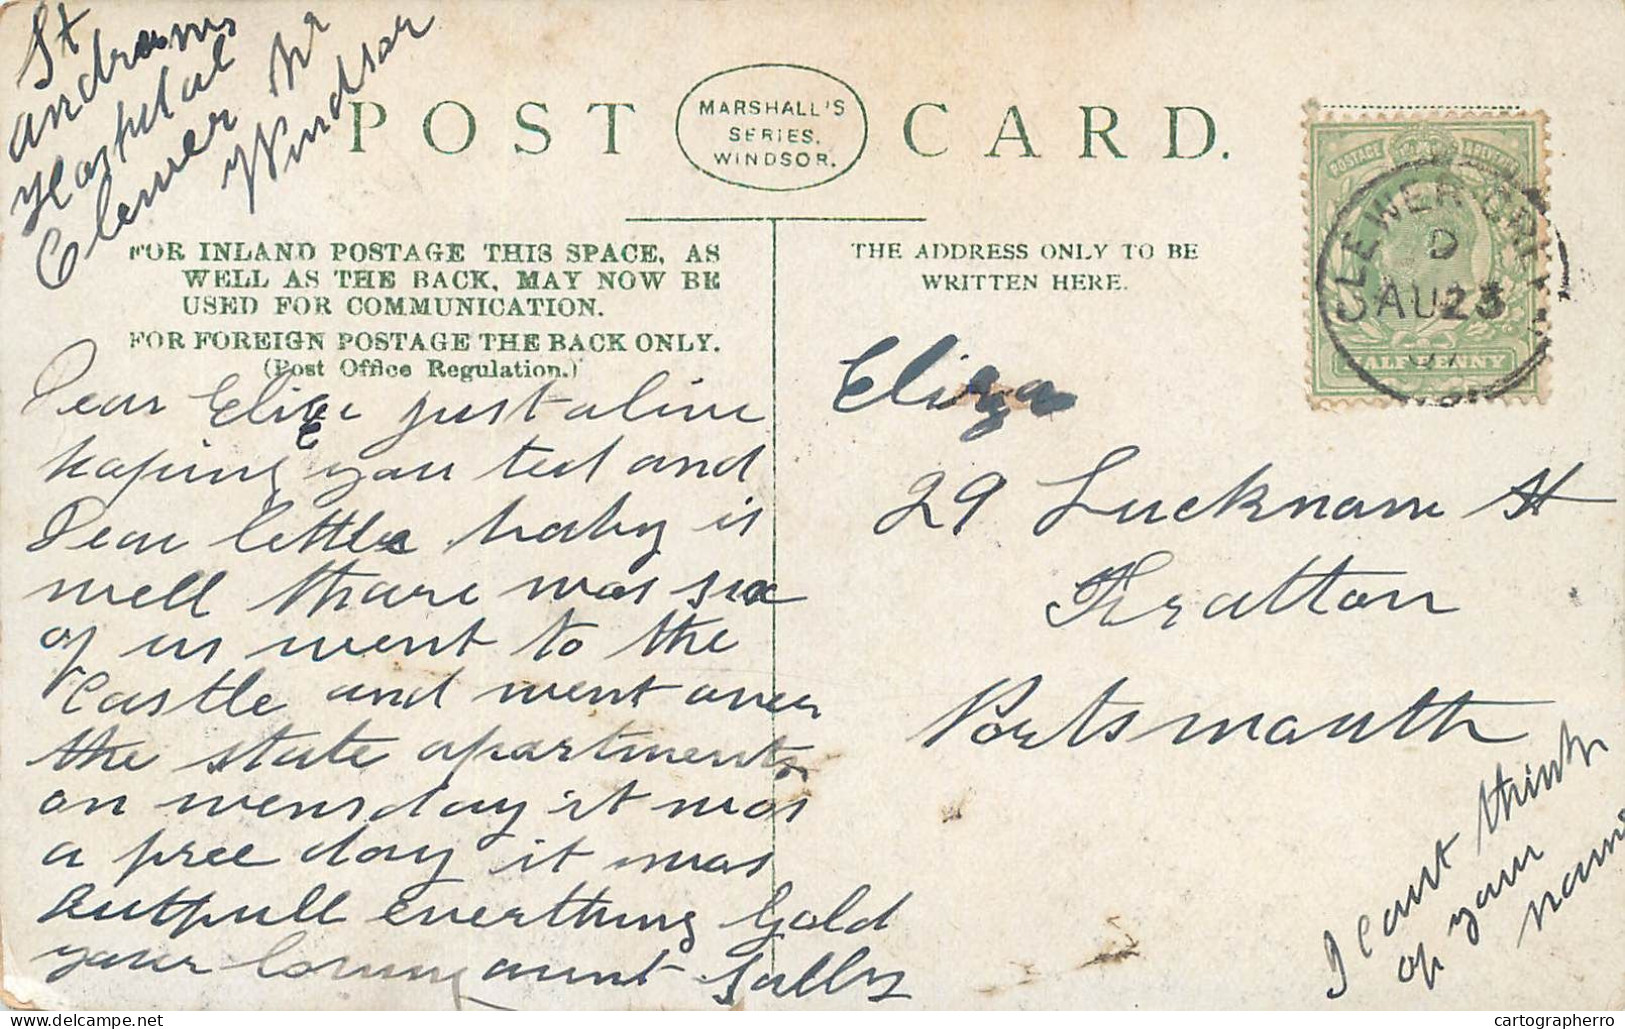 St
andrews
Hospital
Clewer Nr
Windsor
POST CARD.
MARSHALL'S
SERIES.
WINDSOR.
FOR INLAND POSTAGE THIS SPACE, AS
WELL AS THE BACK, MAY NOW BE
USED FOR COMMUNICATION.
FOR FOREIGN POSTAGE THE BACK ONLY.
(Post Office Regulation.)
Dear Elize just a line
hoping you ted and
Dear little baby is
well thare was six
of us went to the
Castle and went over
the state apartments
on wensday it was
a free day it was
Butfull everthing Gold
your loving aunt Sally
THE ADDRESS ONLY TO BE
WRITTEN HERE.
POSTAGE
HALFPENNY
CLEWER GREEN
D
AU 23
07
Eliza
29 Lucknam St
Fratton
Portsmouth
I cant think
of your
name
cartographerro